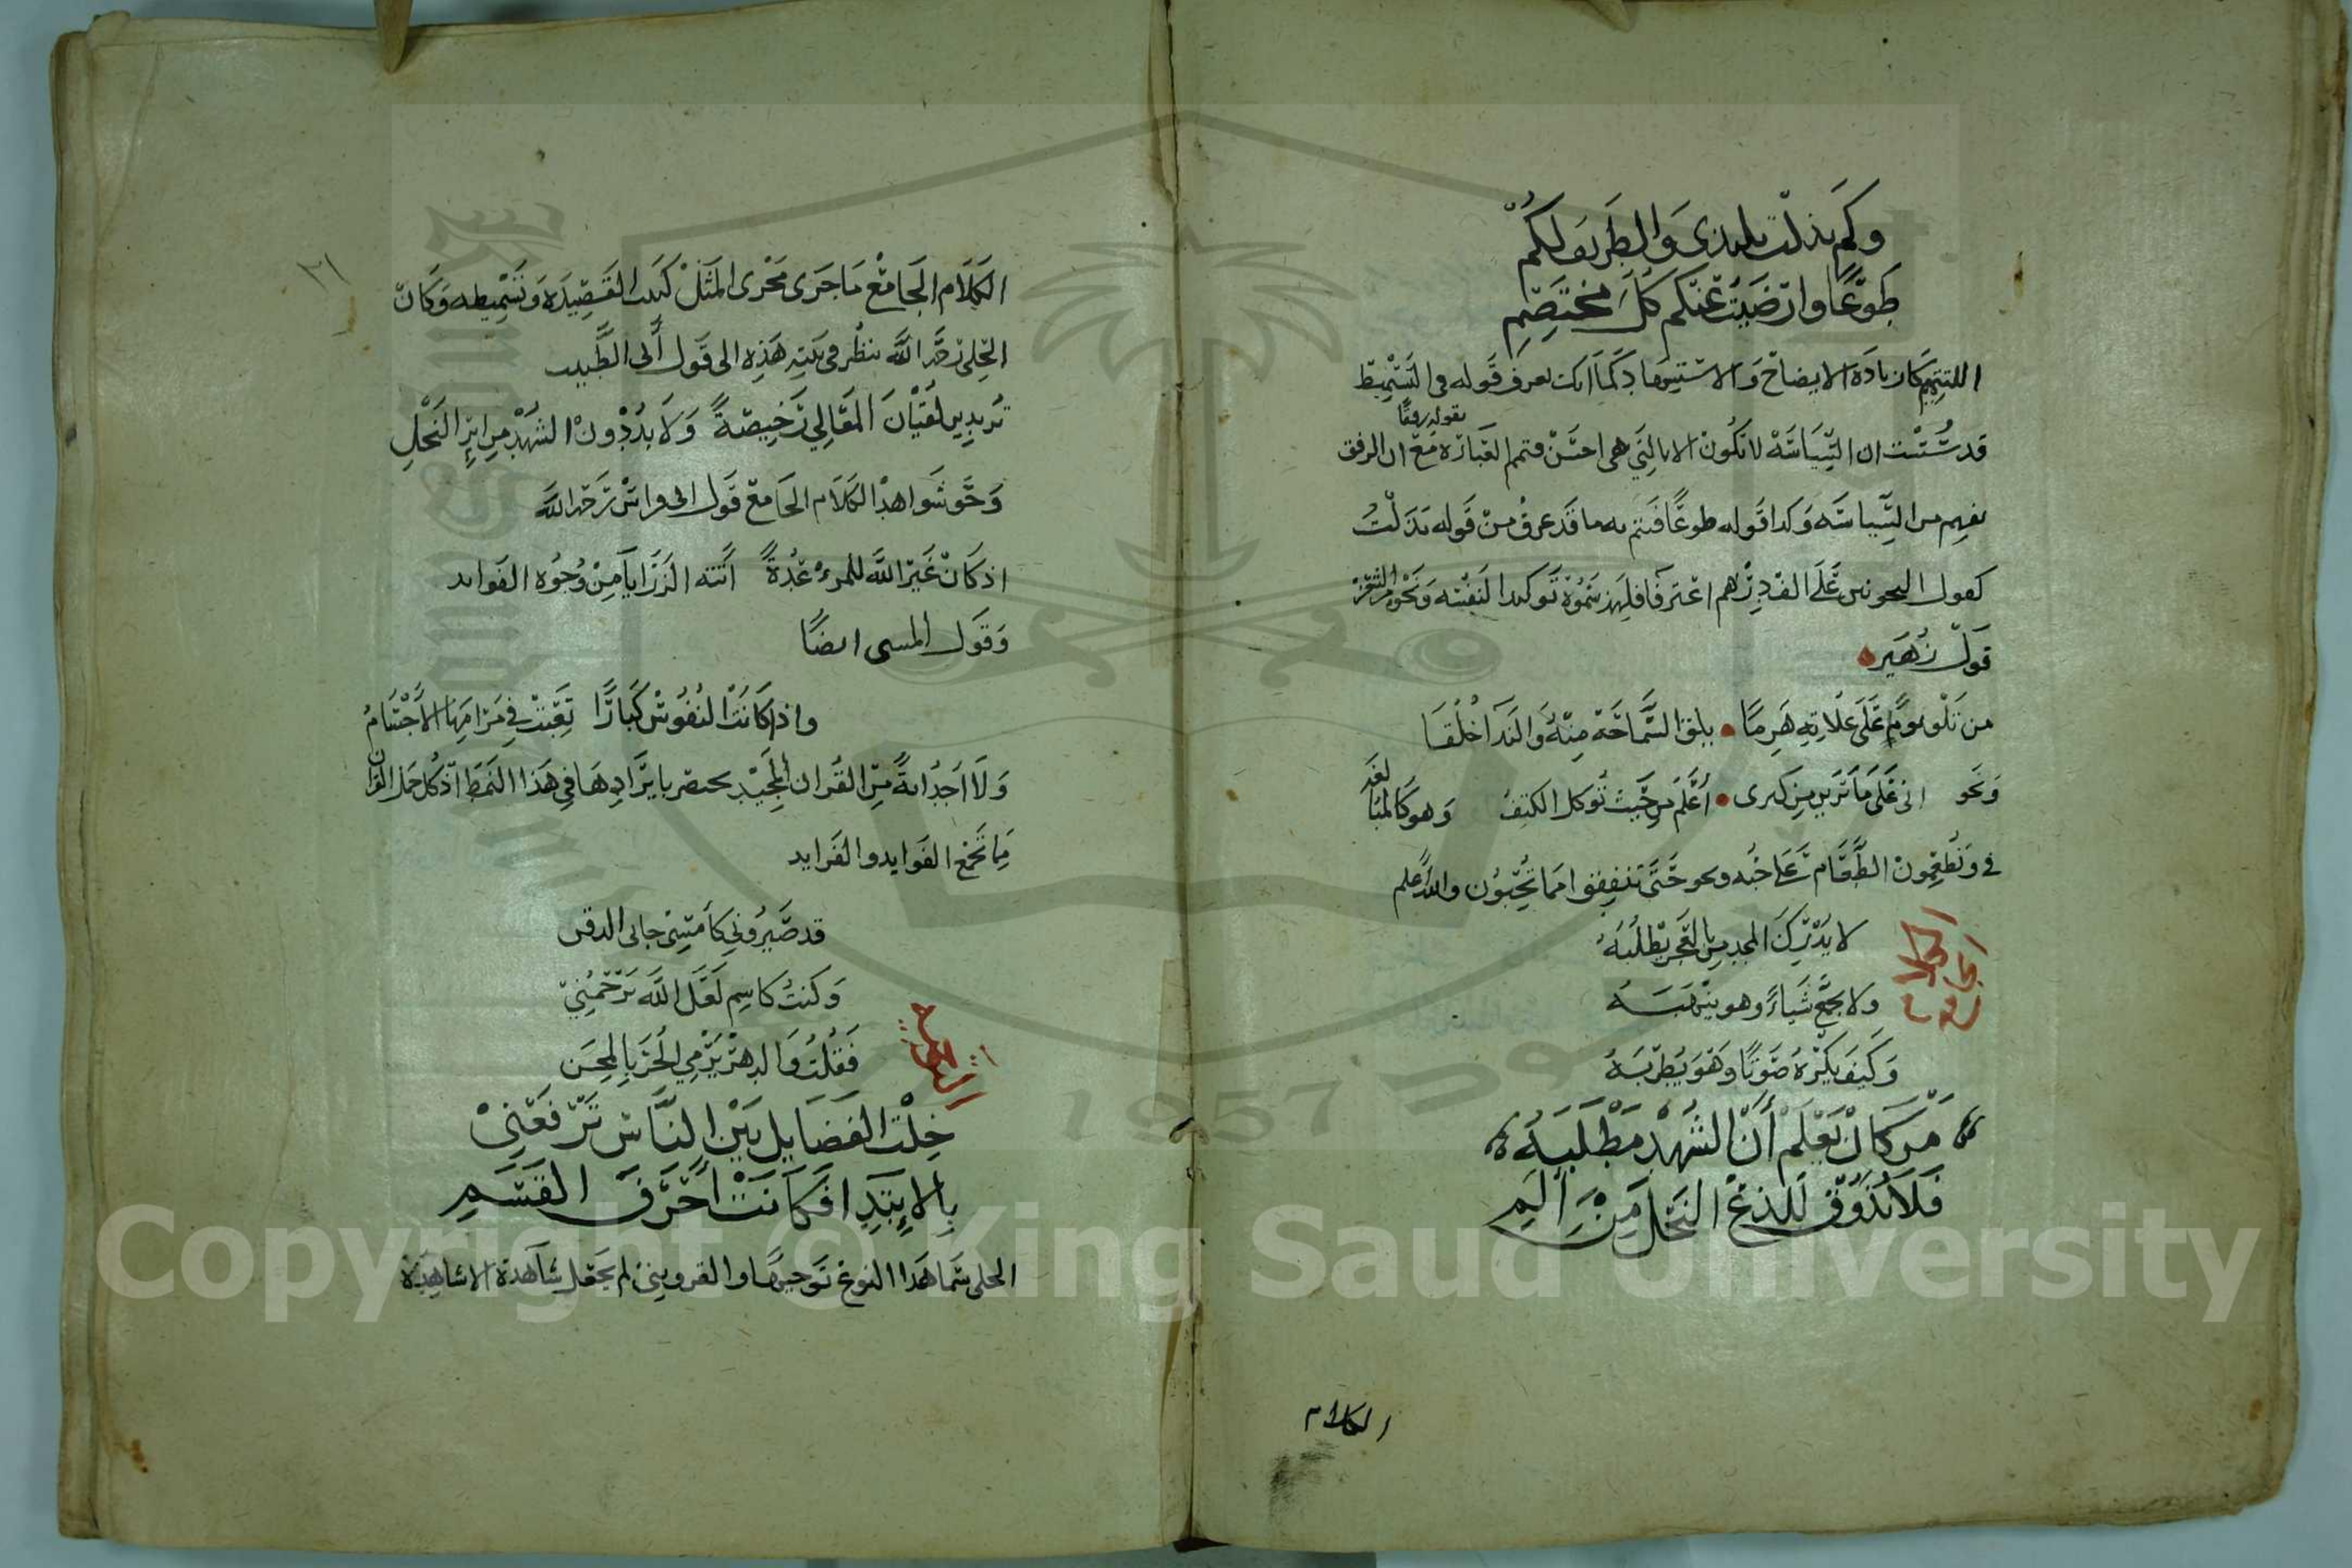 وكم بذلت تليدي والطريف لكم
طوعا وارضيت عنكم كل مختصم
التتميم كان زيادة الايضاح والاستيعاب كما انك تعرف قوله في التسميط
بقوله رفقا
قد سست ان السياسة لا تكون الا بالتي هي احسن فتمم العبارة مع ان الرفق
يفهم من السياسة وكذا قوله طوعا فتمم به ما قد عرف من قوله بذلت
كقول النحويين على الف درهم اعترفا توكيدا لنفسه ونحو من الشعر
قول زهير
من تلق يوما على علاته هرما يلق السماحة منه والندا خلقا
ونحو اني على ما ترين من كبرى أعلم من حيث توكل الكتف وهو كالمبا
لغة
في ويطعمون الطعام على حبه ونحو حتى تنفقوا مما تحبون والله اعلم
لا يدرك المجد من بالعجز يطلبه
ولا يجمع شياء وهو ينهبه
وكيف يكره صوتا وهو يطربه
من كان يعلم أن الشهد مطلبه
فلا يذوق للذع النحل من الم
الكلام
٢١
الكلام الجامع ما جرى مجرى المثل كبيت القصيدة وتسميطه وكان
الحلى رحمه الله ينظر في بيته هذه الى قول أبى الطيب
تريدين لقيان المعالي رخيصة ولا بد دون الشهد من ابر النحل
ونحو شواهد الكلام الجامع قول ابى فراس رحمه الله
اذ كان غير الله للمرء عدة اتته الرزايا من وجوه الفوايد
وقول المتنبى ايضا
واذا كانت النفوس كبارا تعبت في مرامها الأجسام
ولا اجد اية من القران المجيد يختص بايرادها في هذا النمط اذ كل جمل القران
مما تجمع الفوايد والفرايد
قد صيروني كأمس
وكنت كاسم لعل الله يرحمني
فقلت والدهر يرمي الحر بالمحن
خلت الفضايل بين الناس ترفعني
بالابتدا فكانت احرف القسم
الحلى سما هذا النوع توجيها والقزويني لم يجعل شاهدة الا شاهدة
Copyright © King Saud University
1957